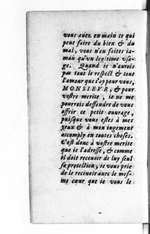 vous auez en main ce qui
peut faire du bien & du
mal, vous n'en faites ia-
mais qu'vn legitime vsa-
ge. Quand ie n'aurois
pas tout le respect & tout
l'amour que i'ay pour vous,
MONSIEVR, & pour
vostre merite, ie ne me
pourrois deffendre de vous
offrir ce petit ouurage,
puisque vous estes à mes
yeux & à mon iugement
accomply en toutes choses.
C'est donc à vostre merite
que ie l'adresse, & comme
il doit receuoir de luy seul
sa protection, ie vous prie
de le receuoir auec le mes-
me cœur que ie vous le